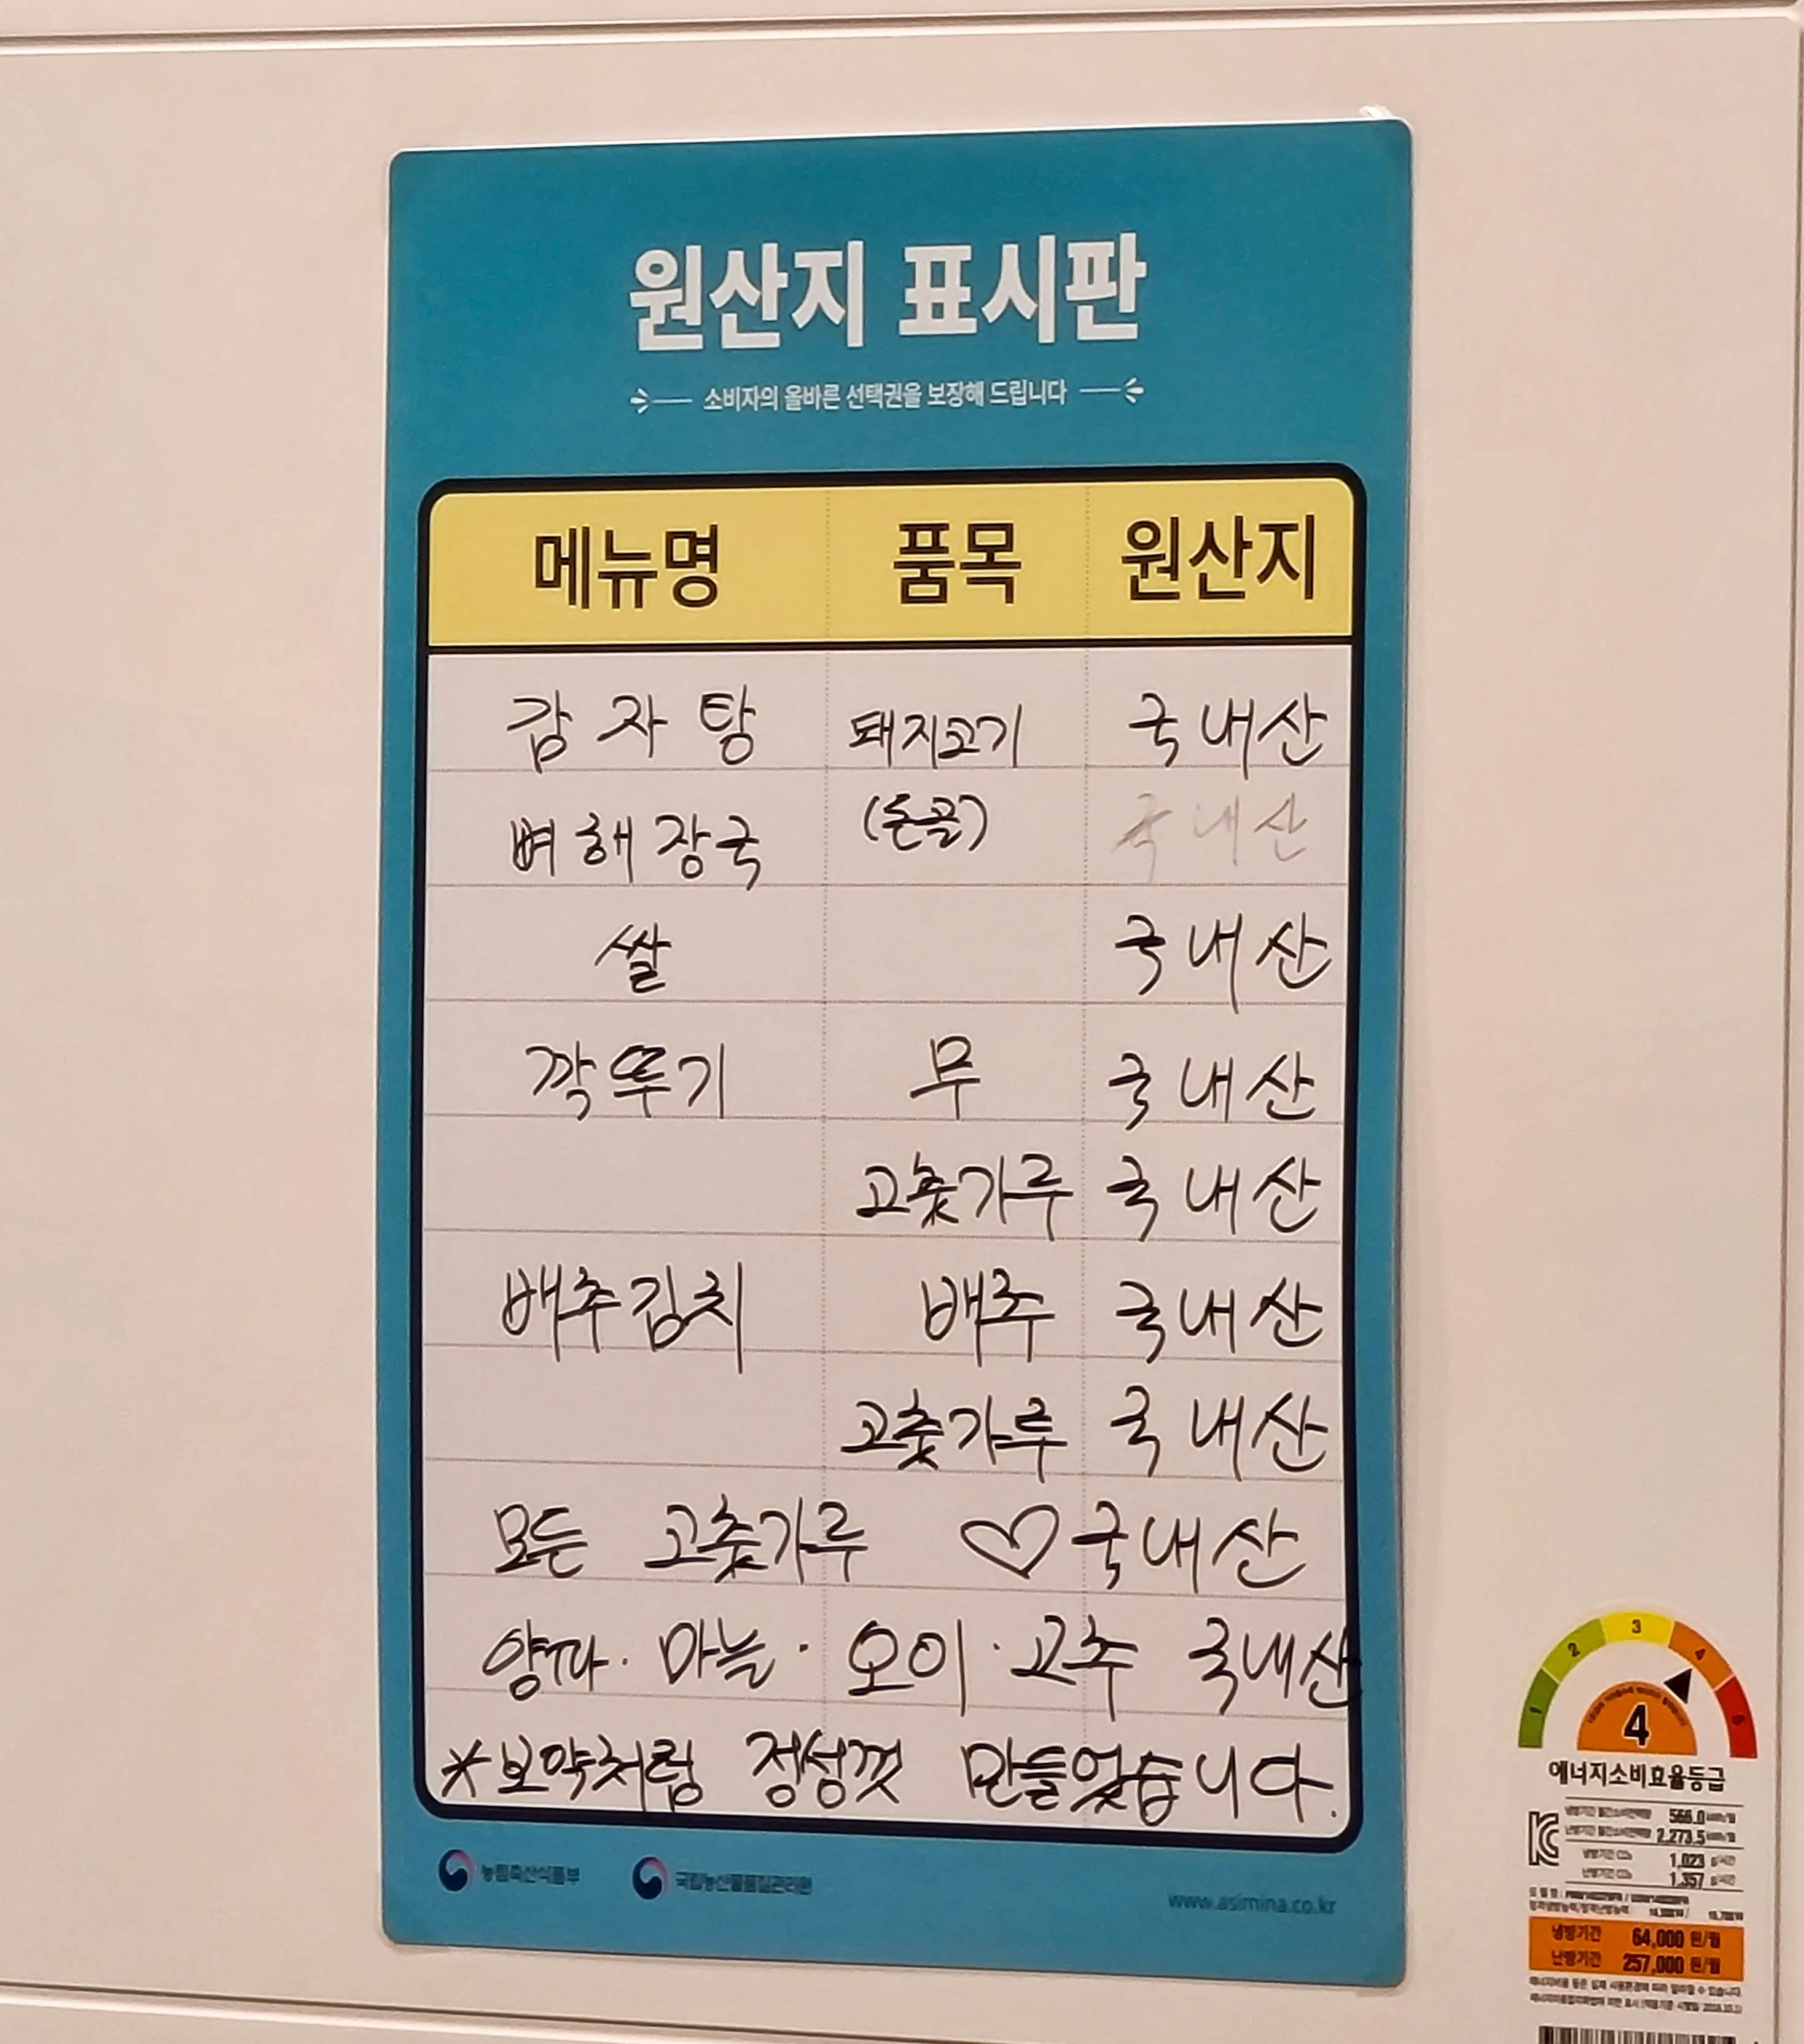 원산지 표시판
소비자의 올바른 선택권을 보장해 드립니다
메뉴명 품목 원산지
감자탕 돼지고기 국내산
뼈해장국 (돈골) 국내산
쌀 국내산
깍뚜기 무 국내산
고춧가루 국내산
배추김치 배추 국내산
고춧가루 국내산
모든 고춧가루 ♡국내산
양파·마늘·오이·고추 국내산
*보약처럼 정성껏 만들었습니다.
농림축산식품부 국립농산물품질관리원
www.asimina.co.kr
1 2 3 4 5
4
에너지소비효율등급
냉방기간 월간소비전력량 566.0
난방기간 월간소비전력량 2,273.5
냉방기간 CO₂ 1,023 g/시간
난방기간 CO₂ 1,357 g/시간
냉방기간 64,000 원/월
난방기간 257,000 원/월